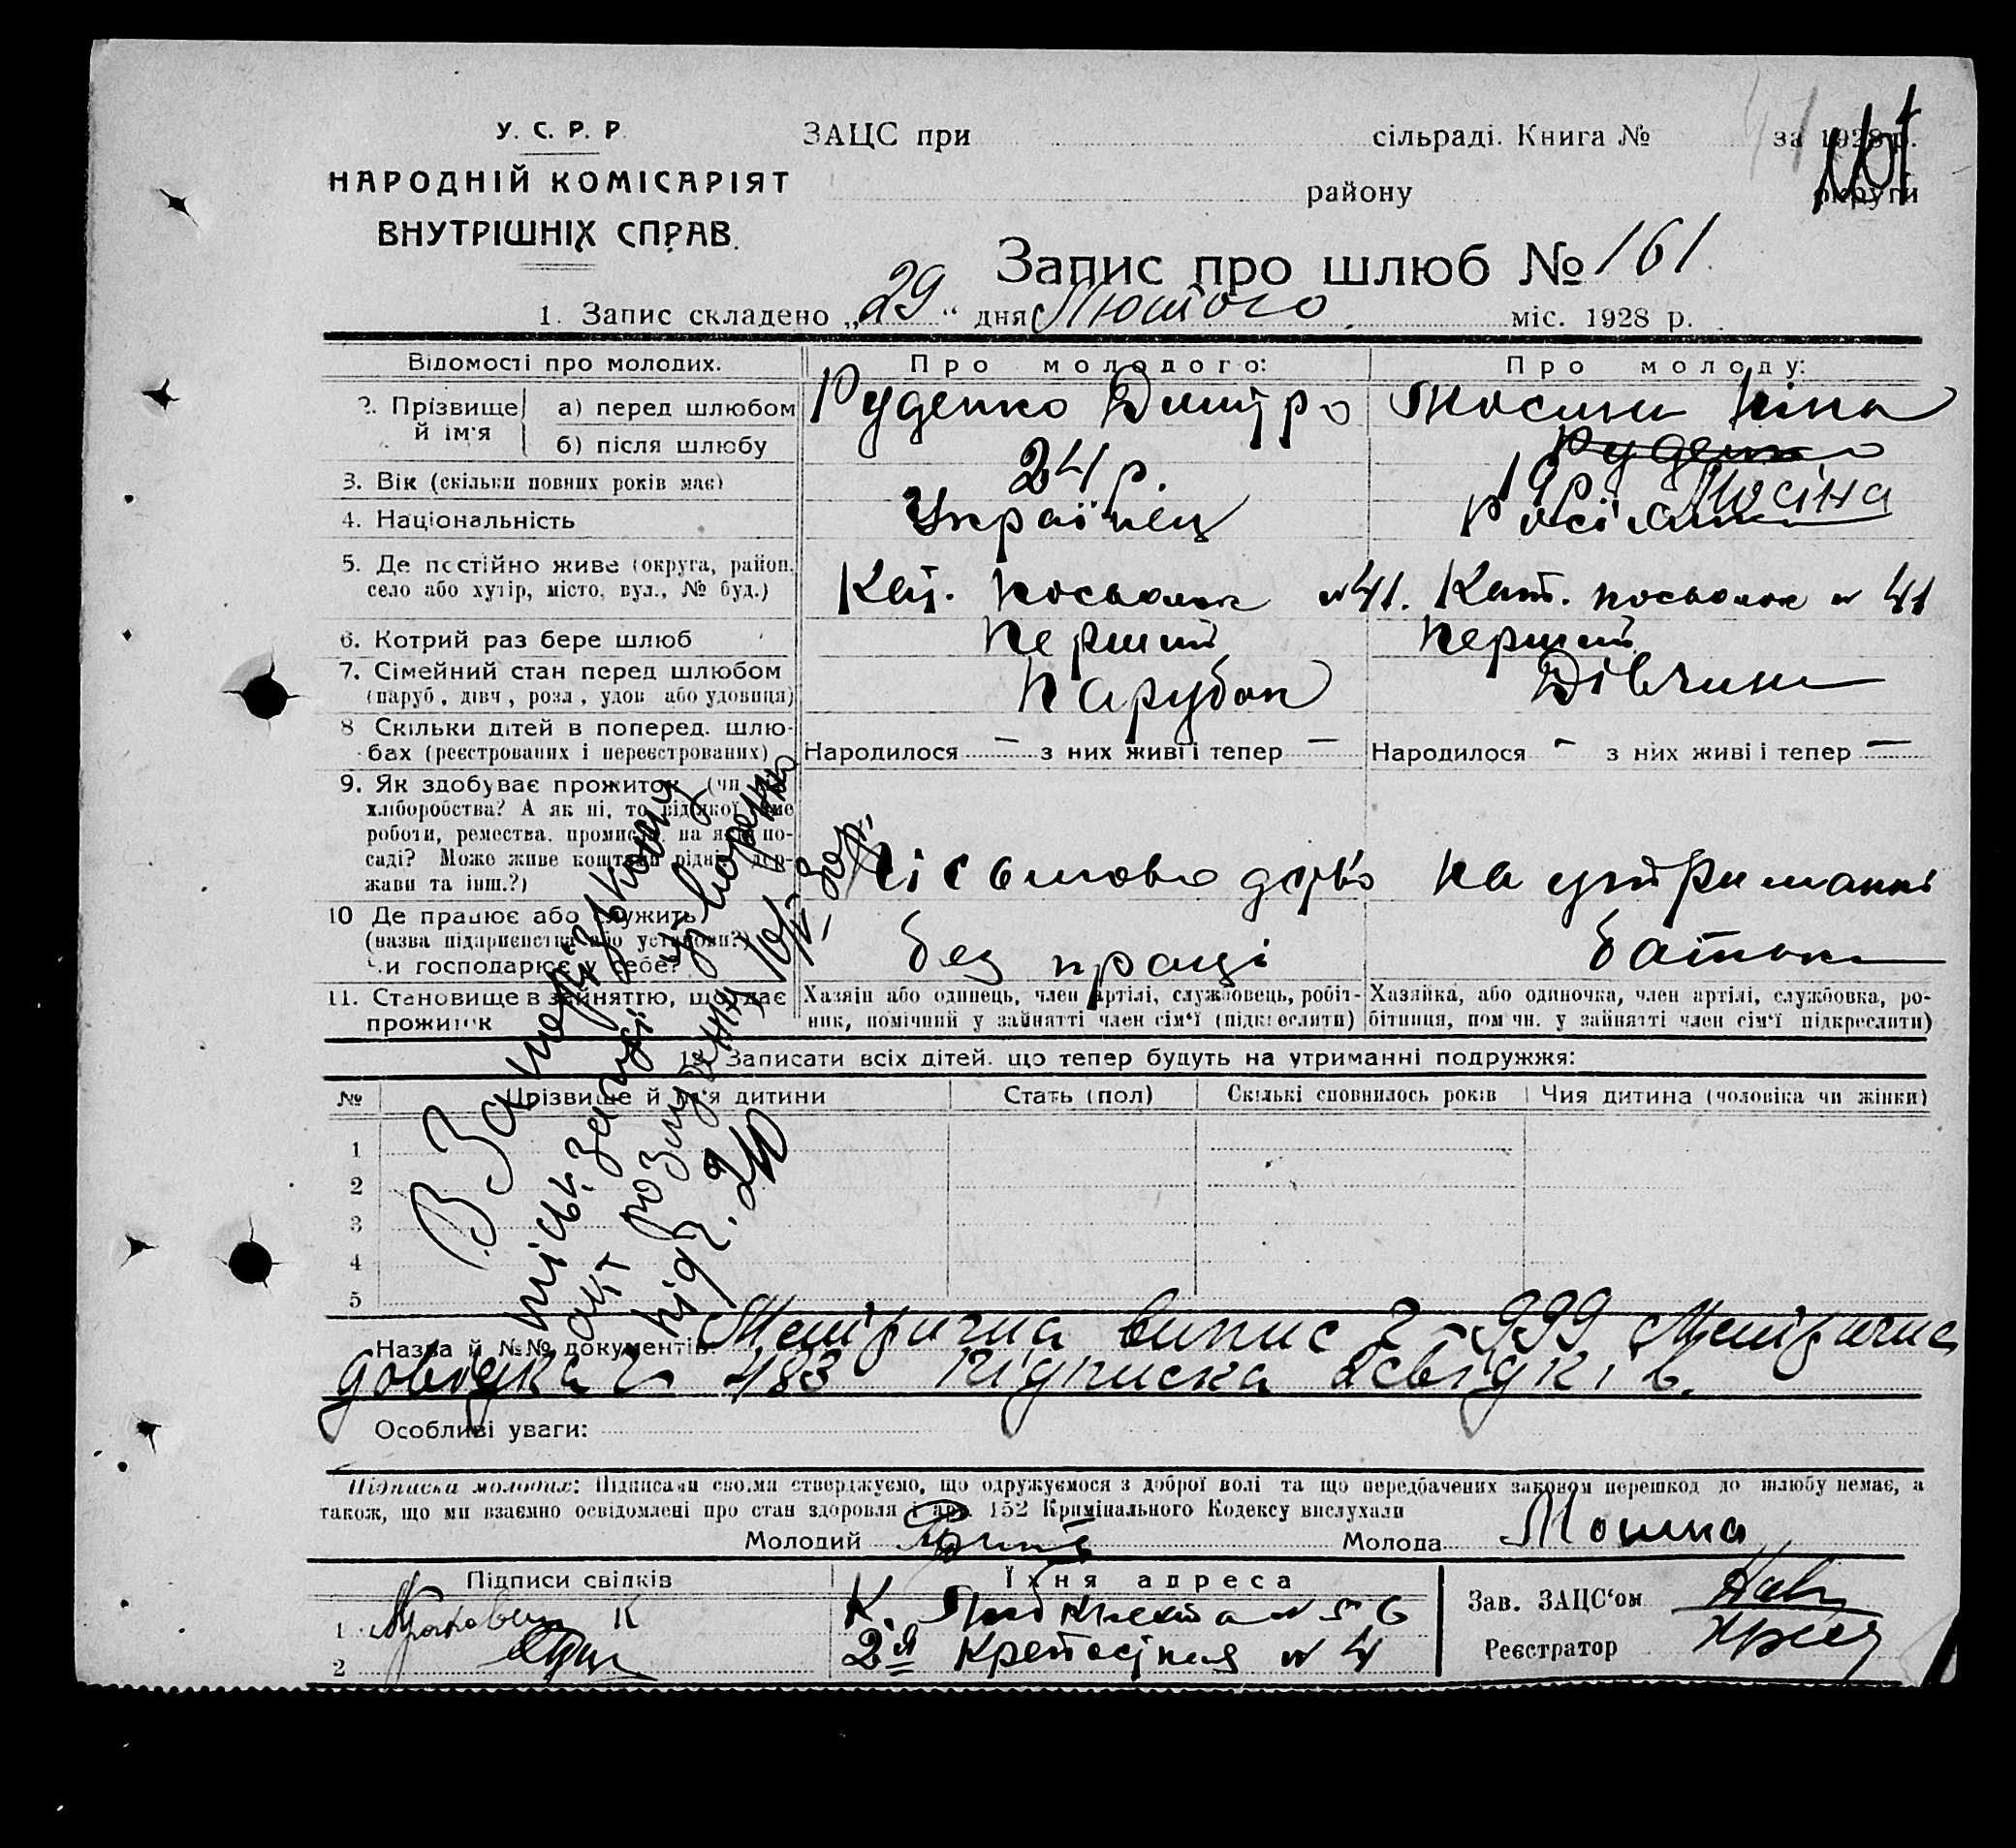 У. С. Р. Р.
НАРОДНІЙ КОМІСАРІЯТ
ВНУТРІШНІХ СПРАВ.
ЗАЦС при сільраді. Книга № за 1928 р.
району округи
161
Запис про шлюб № 161
1. Запис складено „29“ дня Лютого міс. 1928 р.
Відомості про молодих. Про молодого: Про молоду:
2. Прізвище й ім'я а) перед шлюбом Руденко Дмитро Мосина Ніна
б) після шлюбу Руденко Мосіна
3. Вік (скільки повних років має) 24 р. 19 р.
4. Національність Українец Росіянка
5. Де постійно живе (округа, район,
село або хутір, місто, вул., № буд.) Кат. посьолок № 41. Кат. посьолок № 41
6. Котрий раз бере шлюб Перший Перший
7. Сімейний стан перед шлюбом
(паруб, дівч, розл, удов або удовиця) Парубок Дівчина
8 Скільки дітей в поперед. шлю-
бах (реєстрованих і нереєстрованих) Народилося — з них живі і тепер — Народилося — з них живі і тепер —
9. Як здобуває прожиток (чи
хліборобства? А як ні, то від якої саме
роботи, ремества, промислу, на якій по-
саді? Може живе коштами рідні, дер-
жави та інш.?) на утриманні
10 Де працює або служить
(назва підприємства або установи?)
Чи господарює у себе? без праці батька
11. Становище в зайняттю, що дає
прожиток
Хазяїн або одинець, член артілі, службовець, робіт-
ник, помічний у зайнятті член сім'ї (підкреслити)
Хазяйка, або одиночка, член артілі, службовка, ро-
бітниця, пом чн. у зайнятті член сім'ї підкреслити)
12 Записати всіх дітей, що тепер будуть на утриманні подружжя:
№ Прізвище й ім'я дитини Стать (пол) Скількі сповнилось років Чия дитина (чоловіка чи жінки)
1
2
3
4
5
В Запорізькому
міськ. загсі утворено
акт розлучення
Назва й №№ документів: Метрична випис 2-999 Метрична
довідка 483 Підписка 2 свідків.
Особливі уваги:
Підписка молодих: Підписами своїми стверджуємо, що одружуємося з доброї волі та що передбачених законом перешкод до шлюбу немає, а
також, що ми взаємно освідомлені про стан здоровля і арт. 152 Кримінального Кодексу вислухали
Молодий Молода
Підписи свілків Їхня адреса
Зав. ЗАЦС'ом
1 К. Лібкнехта № 56
Реєстратор
2 2я Крепосная № 4